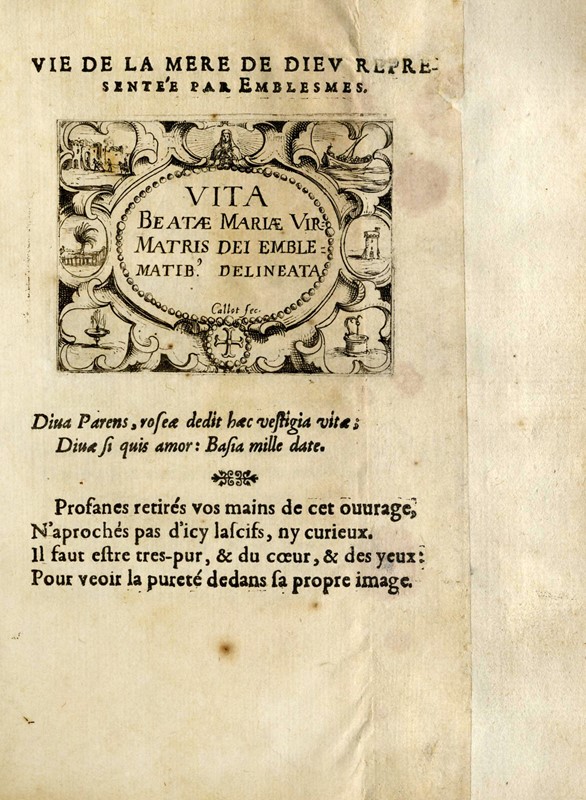 VIE DE LA MERE DE DIEV REPRE-
SENTÉE PAR EMBLESMES.
VITA
BEATÆ MARIÆ VIR:
MATRIS DEI EMBLE:
MATIB? DELINEATA
Callot fec.
Diua Parens, roſeæ dedit hæc veſtigia vitæ;
Diuæ ſi quis amor: Baſia mille date.
Profanes retirés vos mains de cet ouurage,
N'aprochés pas d'icy laſcifs, ny curieux.
Il faut eſtre tres-pur, & du cœur, & des yeux:
Pour veoir la pureté dedans ſa propre image.